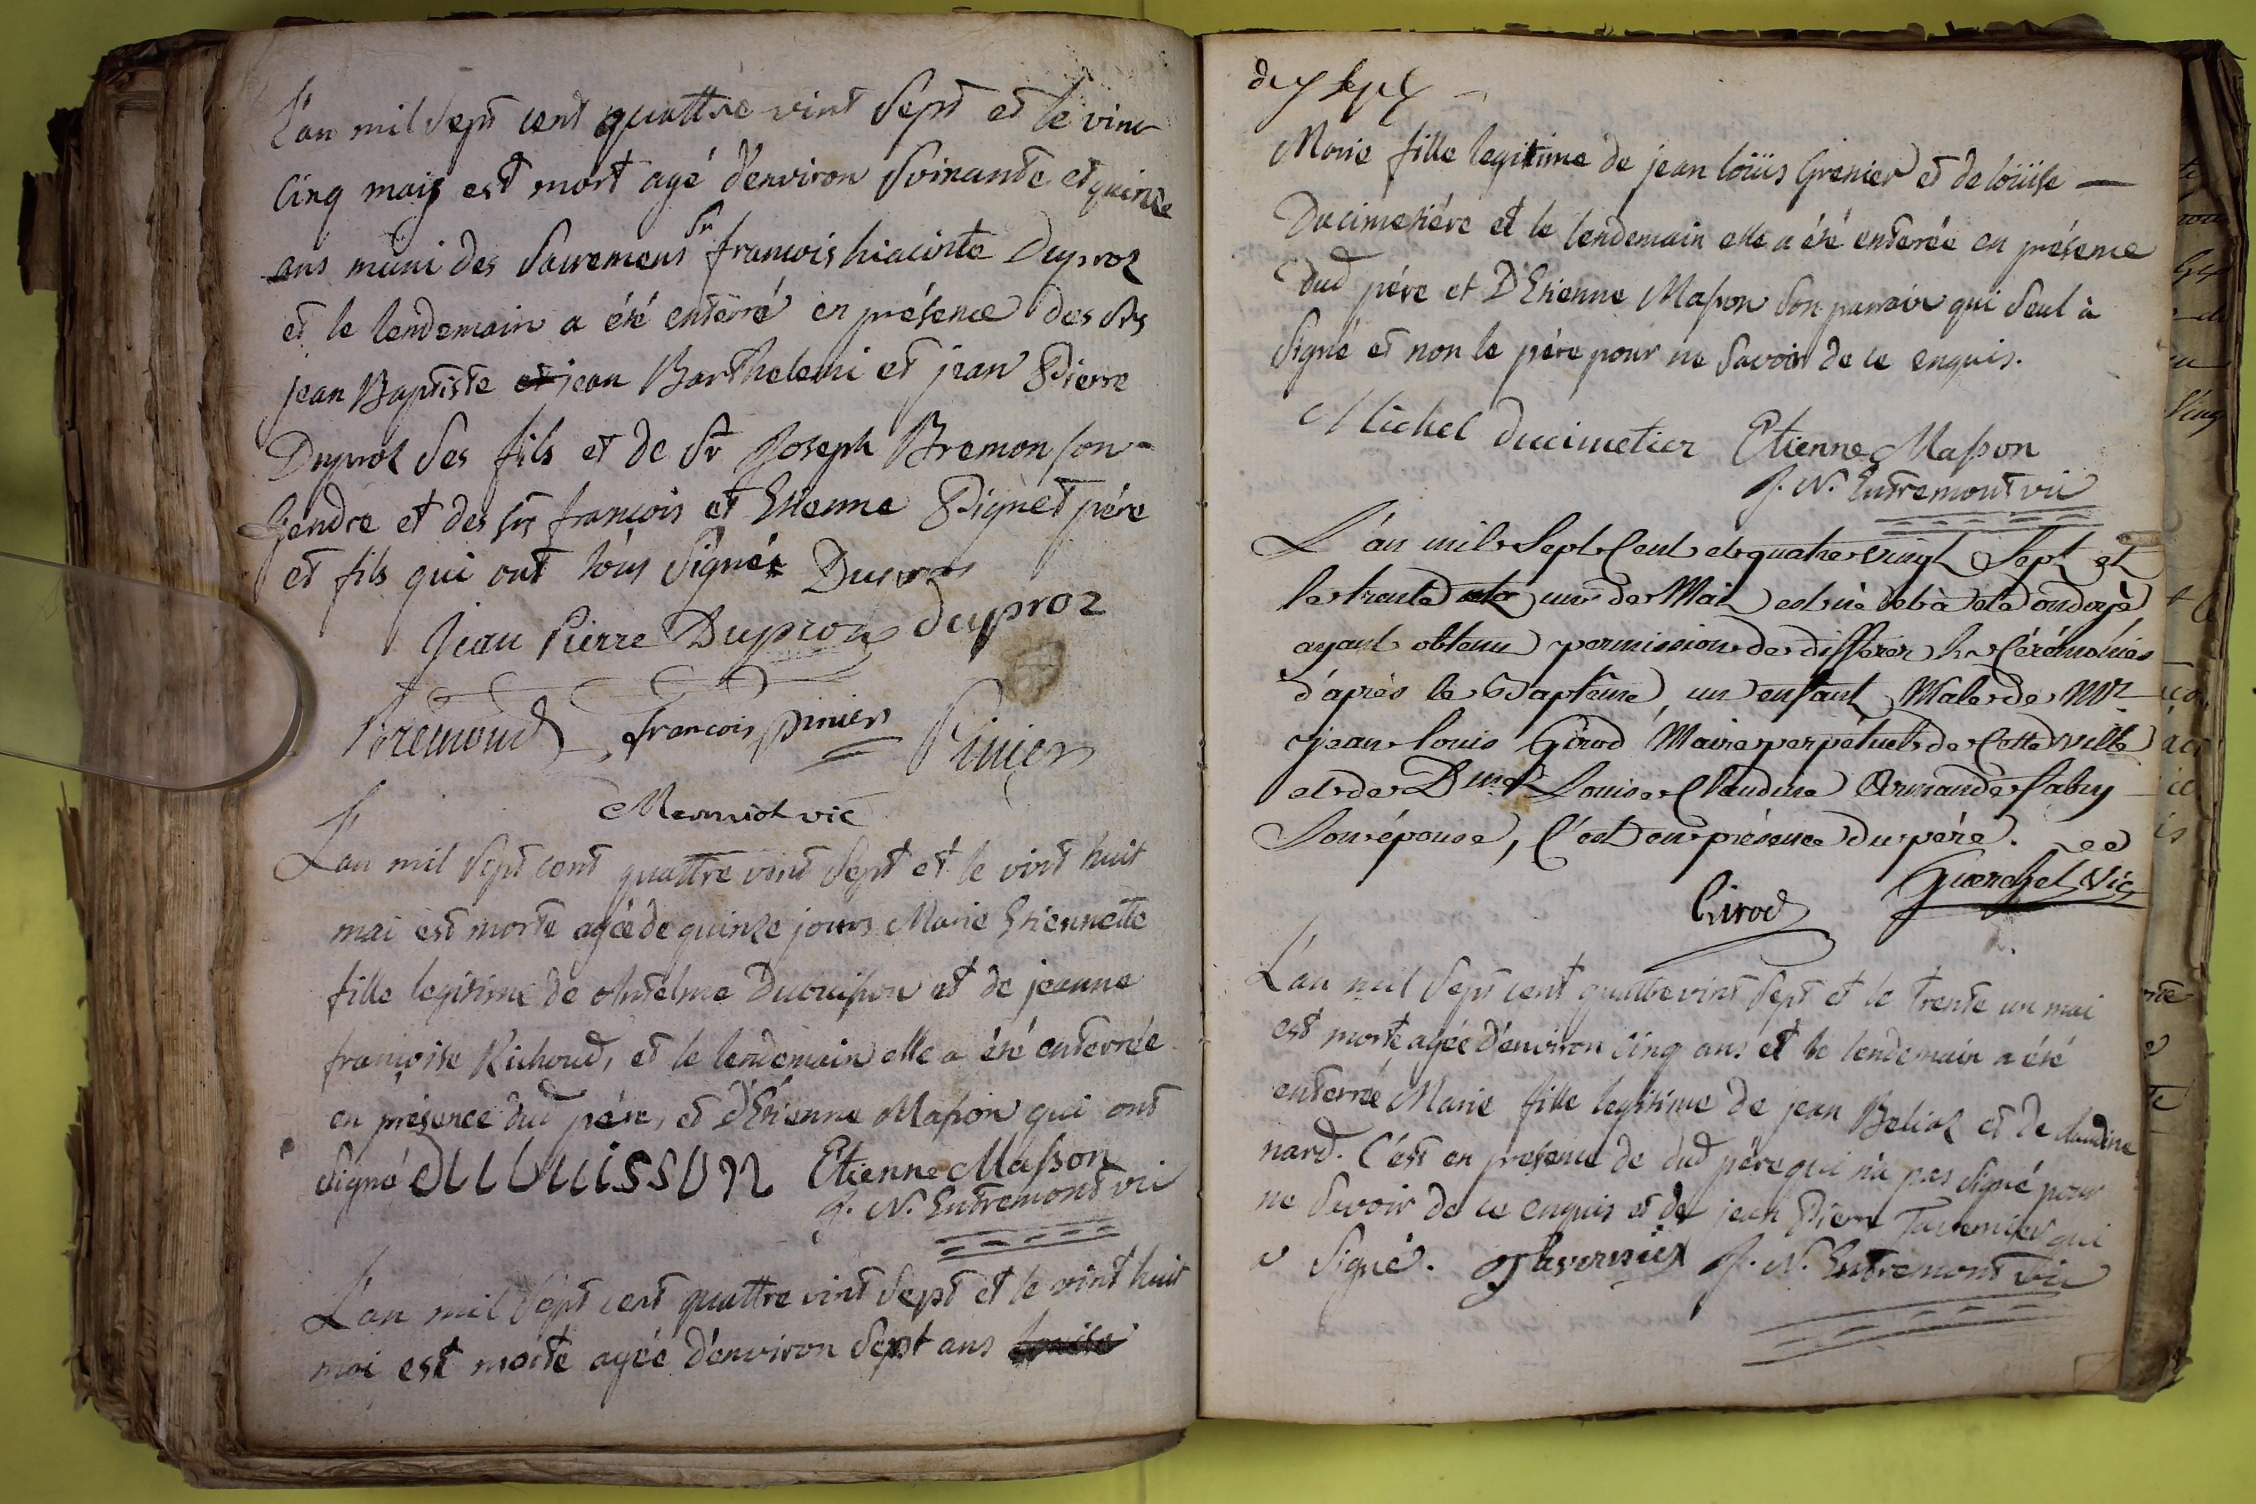 L'an mil Sept cent quattre vint Sept et le vint
Cinq mais est mort agé d'environ Soixante et quinze
ans muni des Sacremens Sr francois hiacinte Duproz
et le lendemain a été enterré en présence des Srs
jean Baptiste et jean Barthelemi et jean Pierre
Duproz Ses fils et de Sr Joseph Bremon son
Gendre et des srs francois et Etienne Pignet pére
et fils qui ont tous Signés Duproz
Jean Pierre Duproz duproz
Bremond francois pinier Pinier
vic
L'an mil Sept cent quattre vint Sept et le vint huit
mai est morte agée de quinze jours Marie Etiennette
fille legitime de Antelme Ducuisson et de jeanne
françoise Richoud, et le lendemain elle a été enterrée
en présence dud pére, et d'Etienne Masson qui ont
Signé ducuisson Etienne Masson
J. N. Entremont vic
L'an mil Sept cent quattre vint Sept et le vint huit
mai est morte agée d'environ Sept ans
Marie fille legitime de jean loüis Grenier et de loüise
Ducimetiére et le lendemain elle a été enterée en présence
dud pére et D'Etienne Masson Son parrain qui Seul à
Signé et non le pére pour ne Savoir de ce enquis.
Michel ducimetier Etienne Masson
J. N. Entremont vic
L'an mil Sept Cent et quatre vingt Sept et
le trente un de Mai est né et à été ondoyé
ayant obtenu permission de differer les Cérémonies
d'après le Baptême, un enfant Male de Mr
jean louis Girod Maire perpétuel de Cette ville
et de Dme Louise Claudine Armande fabry
Son épouse, C'est en présence du pére.
Girod vic
L'an mil Sept cent quattre vint Sept et le trente un mai
est morte agée d'environ Cinq ans et le lendemain a été
enterrée Marie fille legitime de jean Beliaz et de claudine
nard. C'est en presence de dud pére qui n'a pas Signé pour
ne Savoir de ce enquis et de jean Pierre Tavernier qui
a Signé. Tavernier J. N. Entremont vic